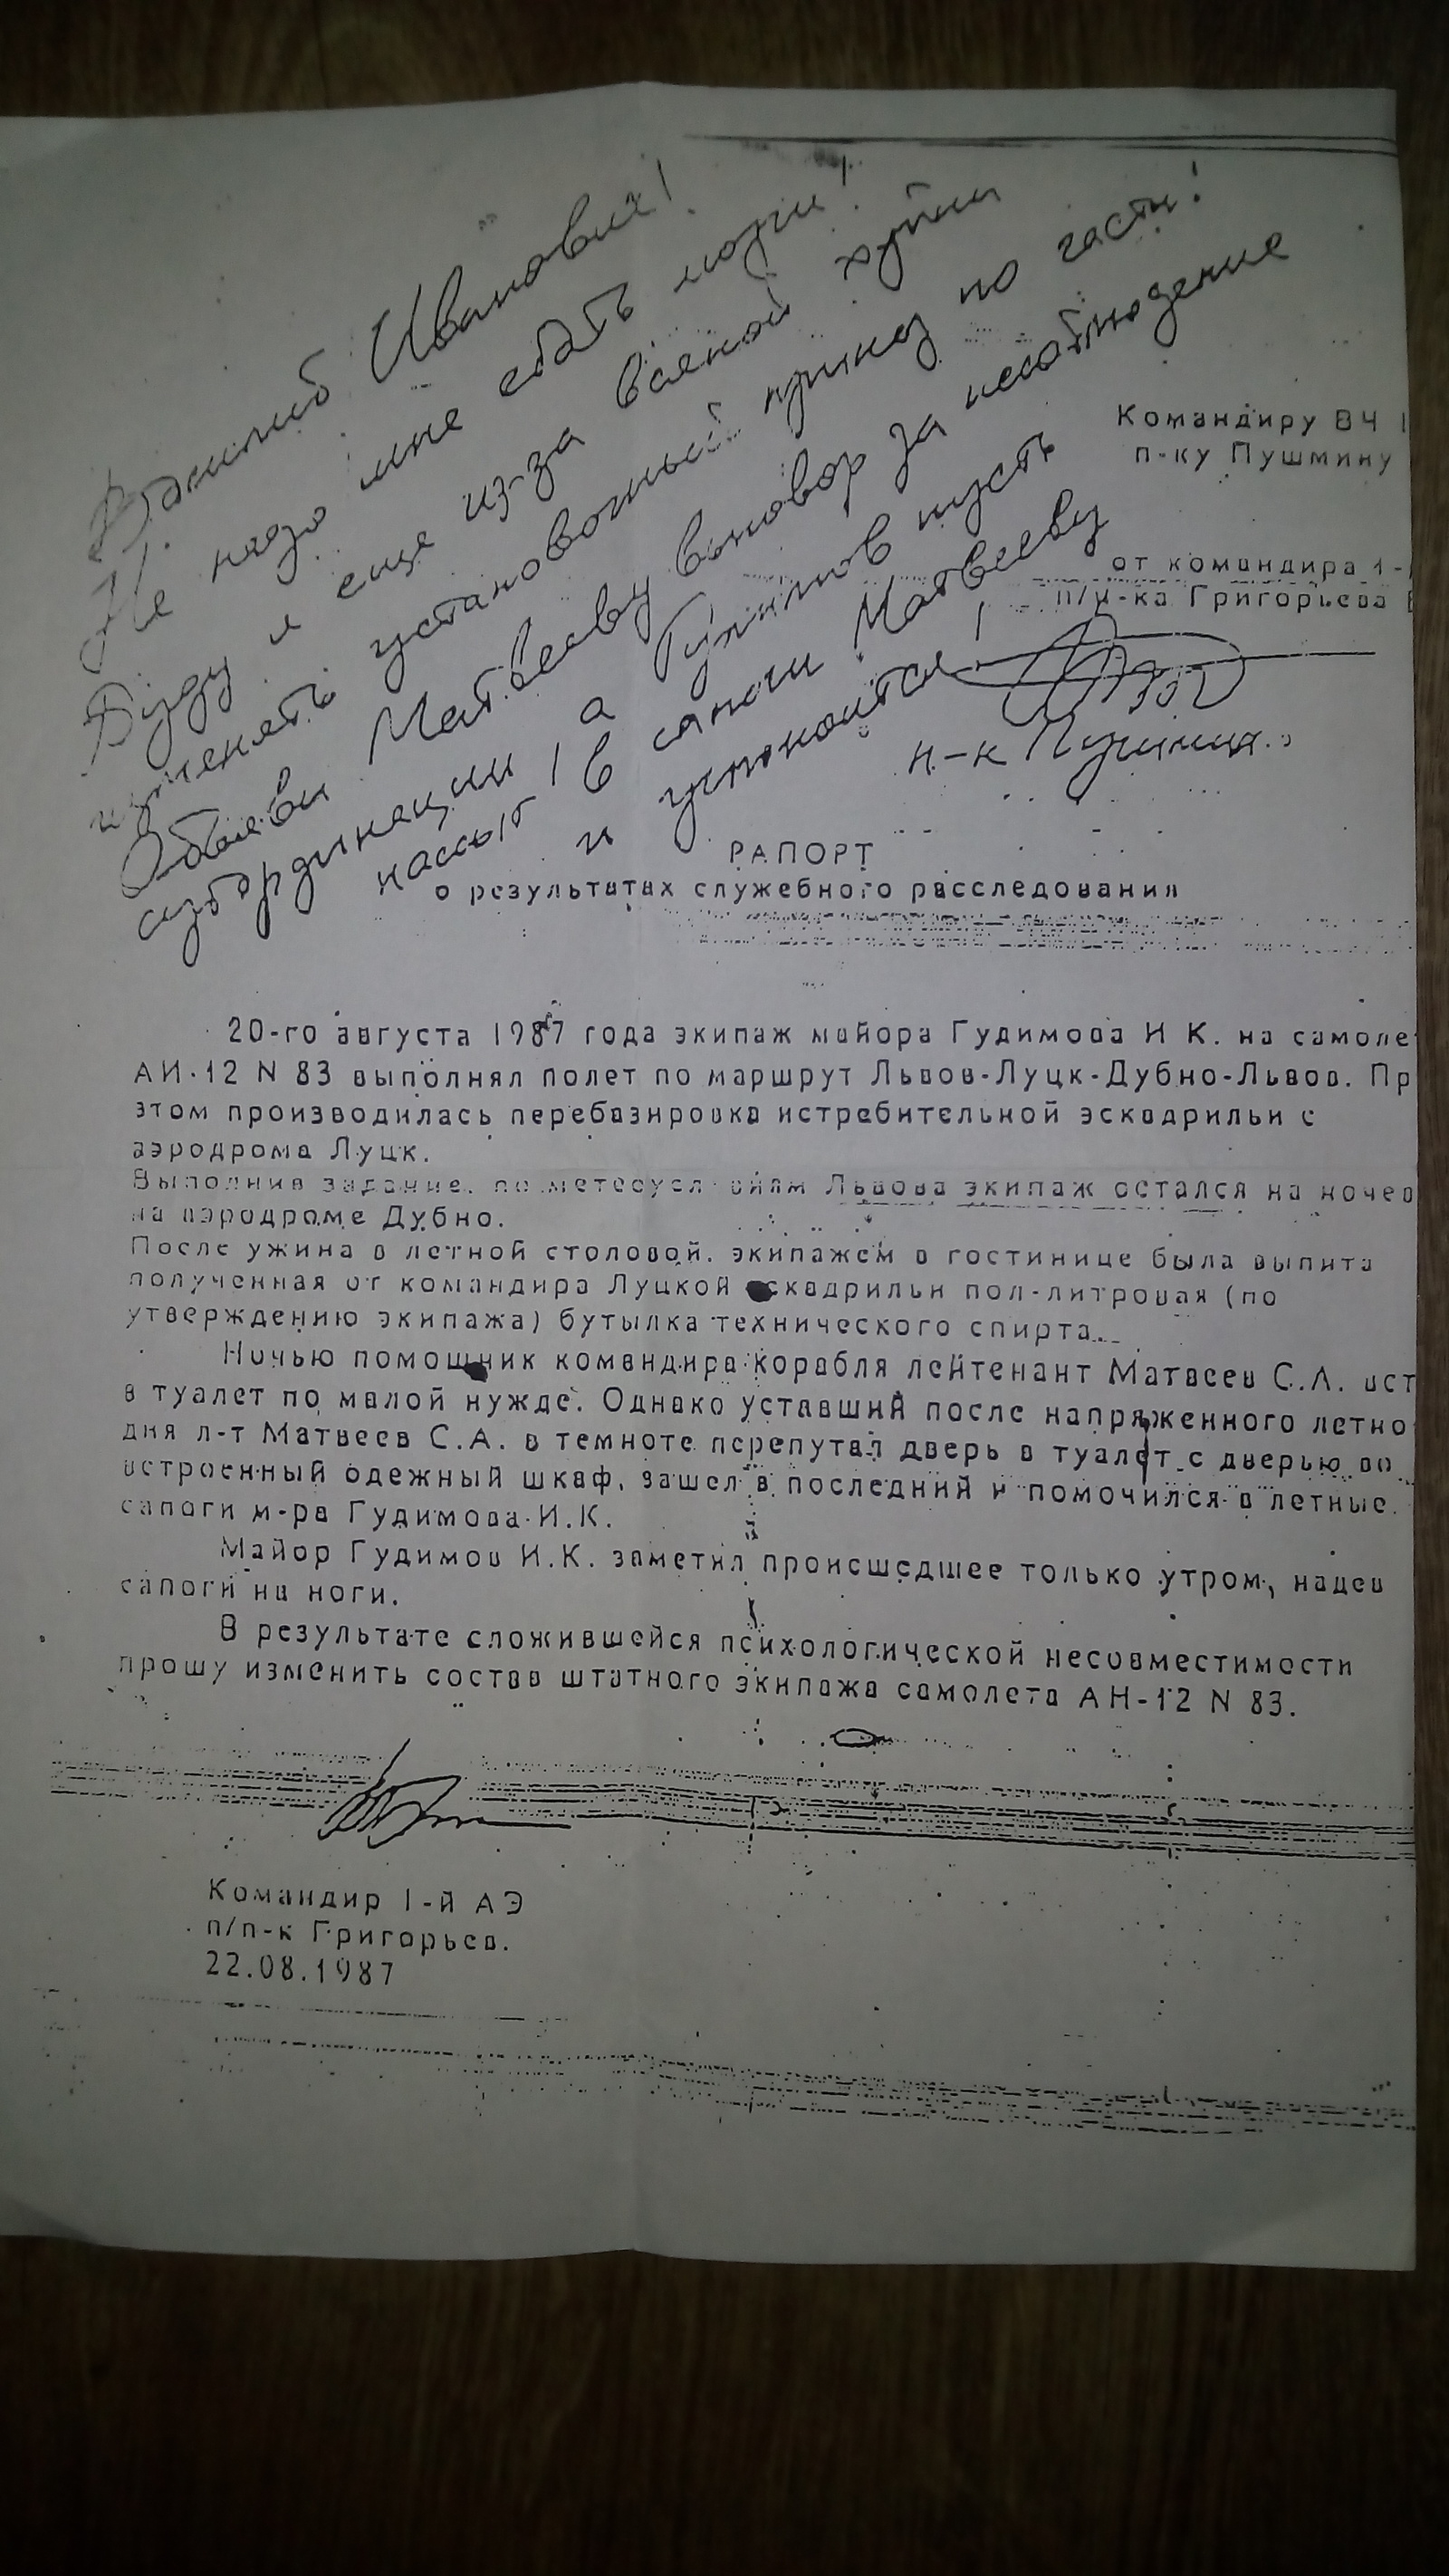 Филипп Иванович!
Не надо мне ебать мозги!
Буду я еще из-за всякой хуйни
изменять установочный приказ по части!
Объяви Матвееву выговор за несоблюдение
субординации, а Гудимов пусть
нассыт в сапоги Матвееву
и успокоится!
п-к Пушмин
Командиру ВЧ
п-ку Пушмину
от командира 1-
п/п-ка Григорьева
РАПОРТ
о результатах служебного расследования
20-го августа 1987 года экипаж майора Гудимова И К. на самоле
АН-12 N 83 выполнял полет по маршрут Львов-Луцк-Дубно-Львов. Пр
этом производилась перебазировка истребительной эскадрильи с
аэродрома Луцк.
Выполнив задание, по метеоусловиям Львова экипаж остался на ночев
на аэродроме Дубно.
После ужина в летной столовой, экипажем в гостинице была выпита
полученная от командира Луцкой эскадрильи пол-литровая (по
утверждению экипажа) бутылка технического спирта.
Ночью помощник командира корабля лейтенант Матвеев С.А. вст
в туалет по малой нужде. Однако уставший после напряженного летно
дня л-т Матвеев С.А. в темноте перепутал дверь в туалет с дверью во
встроенный одежный шкаф, зашел в последний и помочился в летные
сапоги м-ра Гудимова И.К.
Майор Гудимов И.К. заметил происшедшее только утром, надев
сапоги на ноги.
В результате сложившейся психологической несовместимости
прошу изменить состав штатного экипажа самолета АН-12 N 83.
Командир 1-й АЭ
п/п-к Григорьев.
22.08.1987